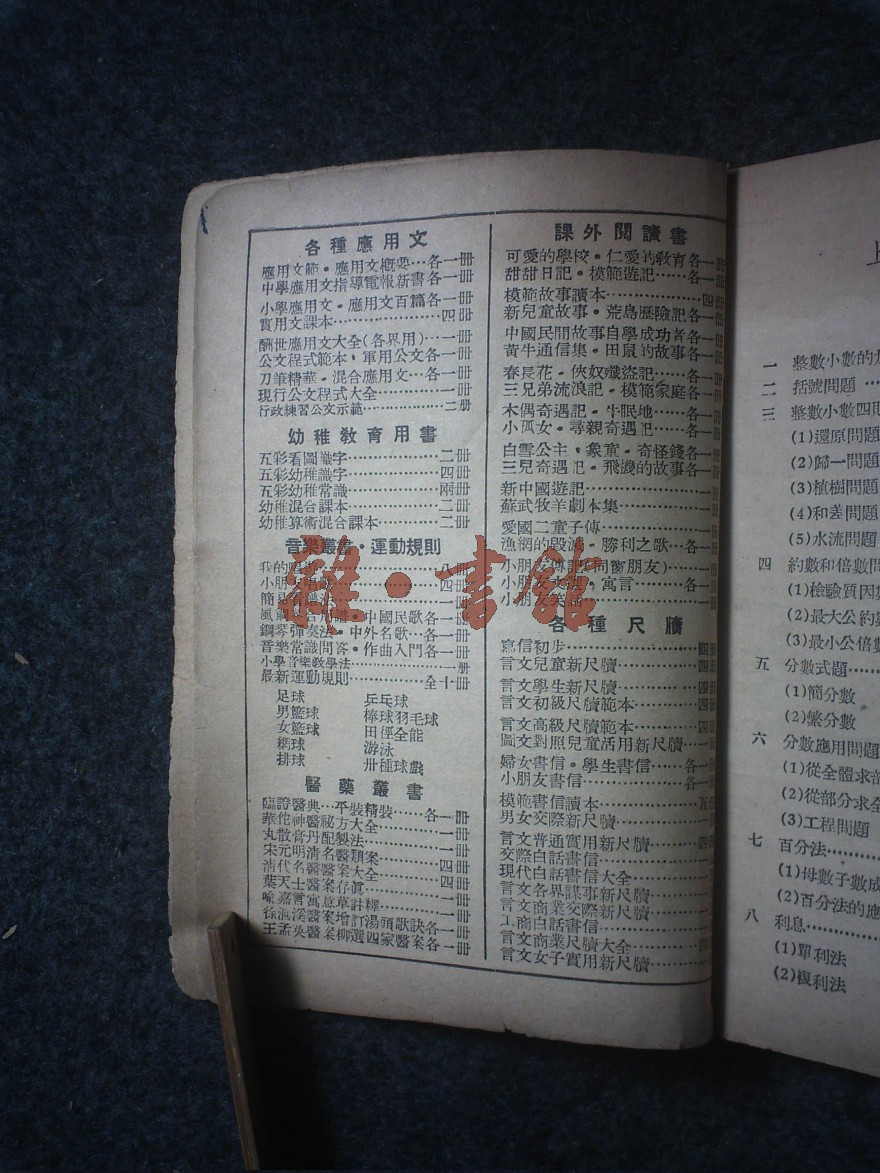 各種應用文
應用文範・應用文概要…各一册
中學應用文指導電報新書各一册
小學應用文・應用文百篇各一册
實用文課本……………四册
酬世應用文大全(各界用)…一册
公文程式範本・軍用公文各一册
刀筆精華・混合應用文…各一册
現行公文程式大全………一册
行政練習公文示範………二册
幼稚敎育用書
五彩看圖識字……………二册
五彩幼稚識字……………四册
五彩幼稚常識……………兩册
幼稚混合課本……………二册
幼稚算術混合課本………二册
音樂叢書・運動規則
我的唱
小朋友
中國民歌各一册
鋼琴彈奏法・中外名歌…各一册
音樂常識問答・作曲入門各一册
小學音樂敎學法…………一册
最新運動規則……………全十册
足球 乒乓球
男籃球 棒球羽毛球
女籃球 田徑全能
網球 游泳
排球 卅種球戲
醫藥叢書
臨證醫典…平裝精裝……各一册
華佗神醫祕方大全………一册
丸散膏丹配製法…………一册
宋元明清名醫類案………四册
清代名醫醫案大全………四册
葉天士醫案存眞…………一册
喻嘉言寓意草註釋………一册
徐洄溪醫案增訂湯頭歌訣各一册
王孟英醫案柳選四家醫案各一册
課外閱讀書
可愛的學校・仁愛的敎育各一册
甜甜日記・模範遊記……各一册
模範故事讀本……………四册
新兒童故事・荒島歷險記各一册
中國民間故事自學成功者各一册
黃牛通信集・田鼠的故事各一册
春長花・俠奴殲盜記……各一册
三兄弟流浪記・模範家庭各一册
木偶奇遇記・牛眠地……各一册
小孤女・尋親奇遇記……各一册
白雪公主・象童・奇怪錢各一册
三兒奇遇記・飛渡的故事各一册
新中國遊記………………一册
蘇武牧羊劇本集…………一册
愛國二童子傳……………一册
漁網的毀滅・勝利之歌…各一册
小朋友 (同窗朋友)……一册
小朋友 寓言……各一册
小朋友
各種尺牘
寫信初步…………………四册
言文兒童新尺牘…………四册
言文學生新尺牘…………四册
言文初級尺牘範本………四册
言文高級尺牘範本………四册
圖文對照兒童活用新尺牘…一册
婦女書信・學生書信……各一册
小朋友書信………………一册
模範書信讀本……………五册
男女交際新尺牘…………一册
言文普通實用新尺牘……四册
交際白話書信
現代白話書信大全
言文各界謀事新尺牘
言文商業交際新尺牘
工商白話書信
言文商業尺牘大全………四册
言文女子實用新尺牘
雜・書館
上
一 整數小數的
二 括號問題
三 整數小數四則
(1)還原問題
(2)歸一問題
(3)植樹問題
(4)和差問題
(5)水流問題
四 約數和倍數問
(1)檢驗質因
(2)最大公約
(3)最小公倍
五 分數式題
(1)簡分數
(2)繁分數
六 分數應用問題
(1)從全體求部
(2)從部分求全
(3)工程問題
七 百分法
(1)母數子數成
(2)百分法的應
八 利息
(1)單利法
(2)複利法